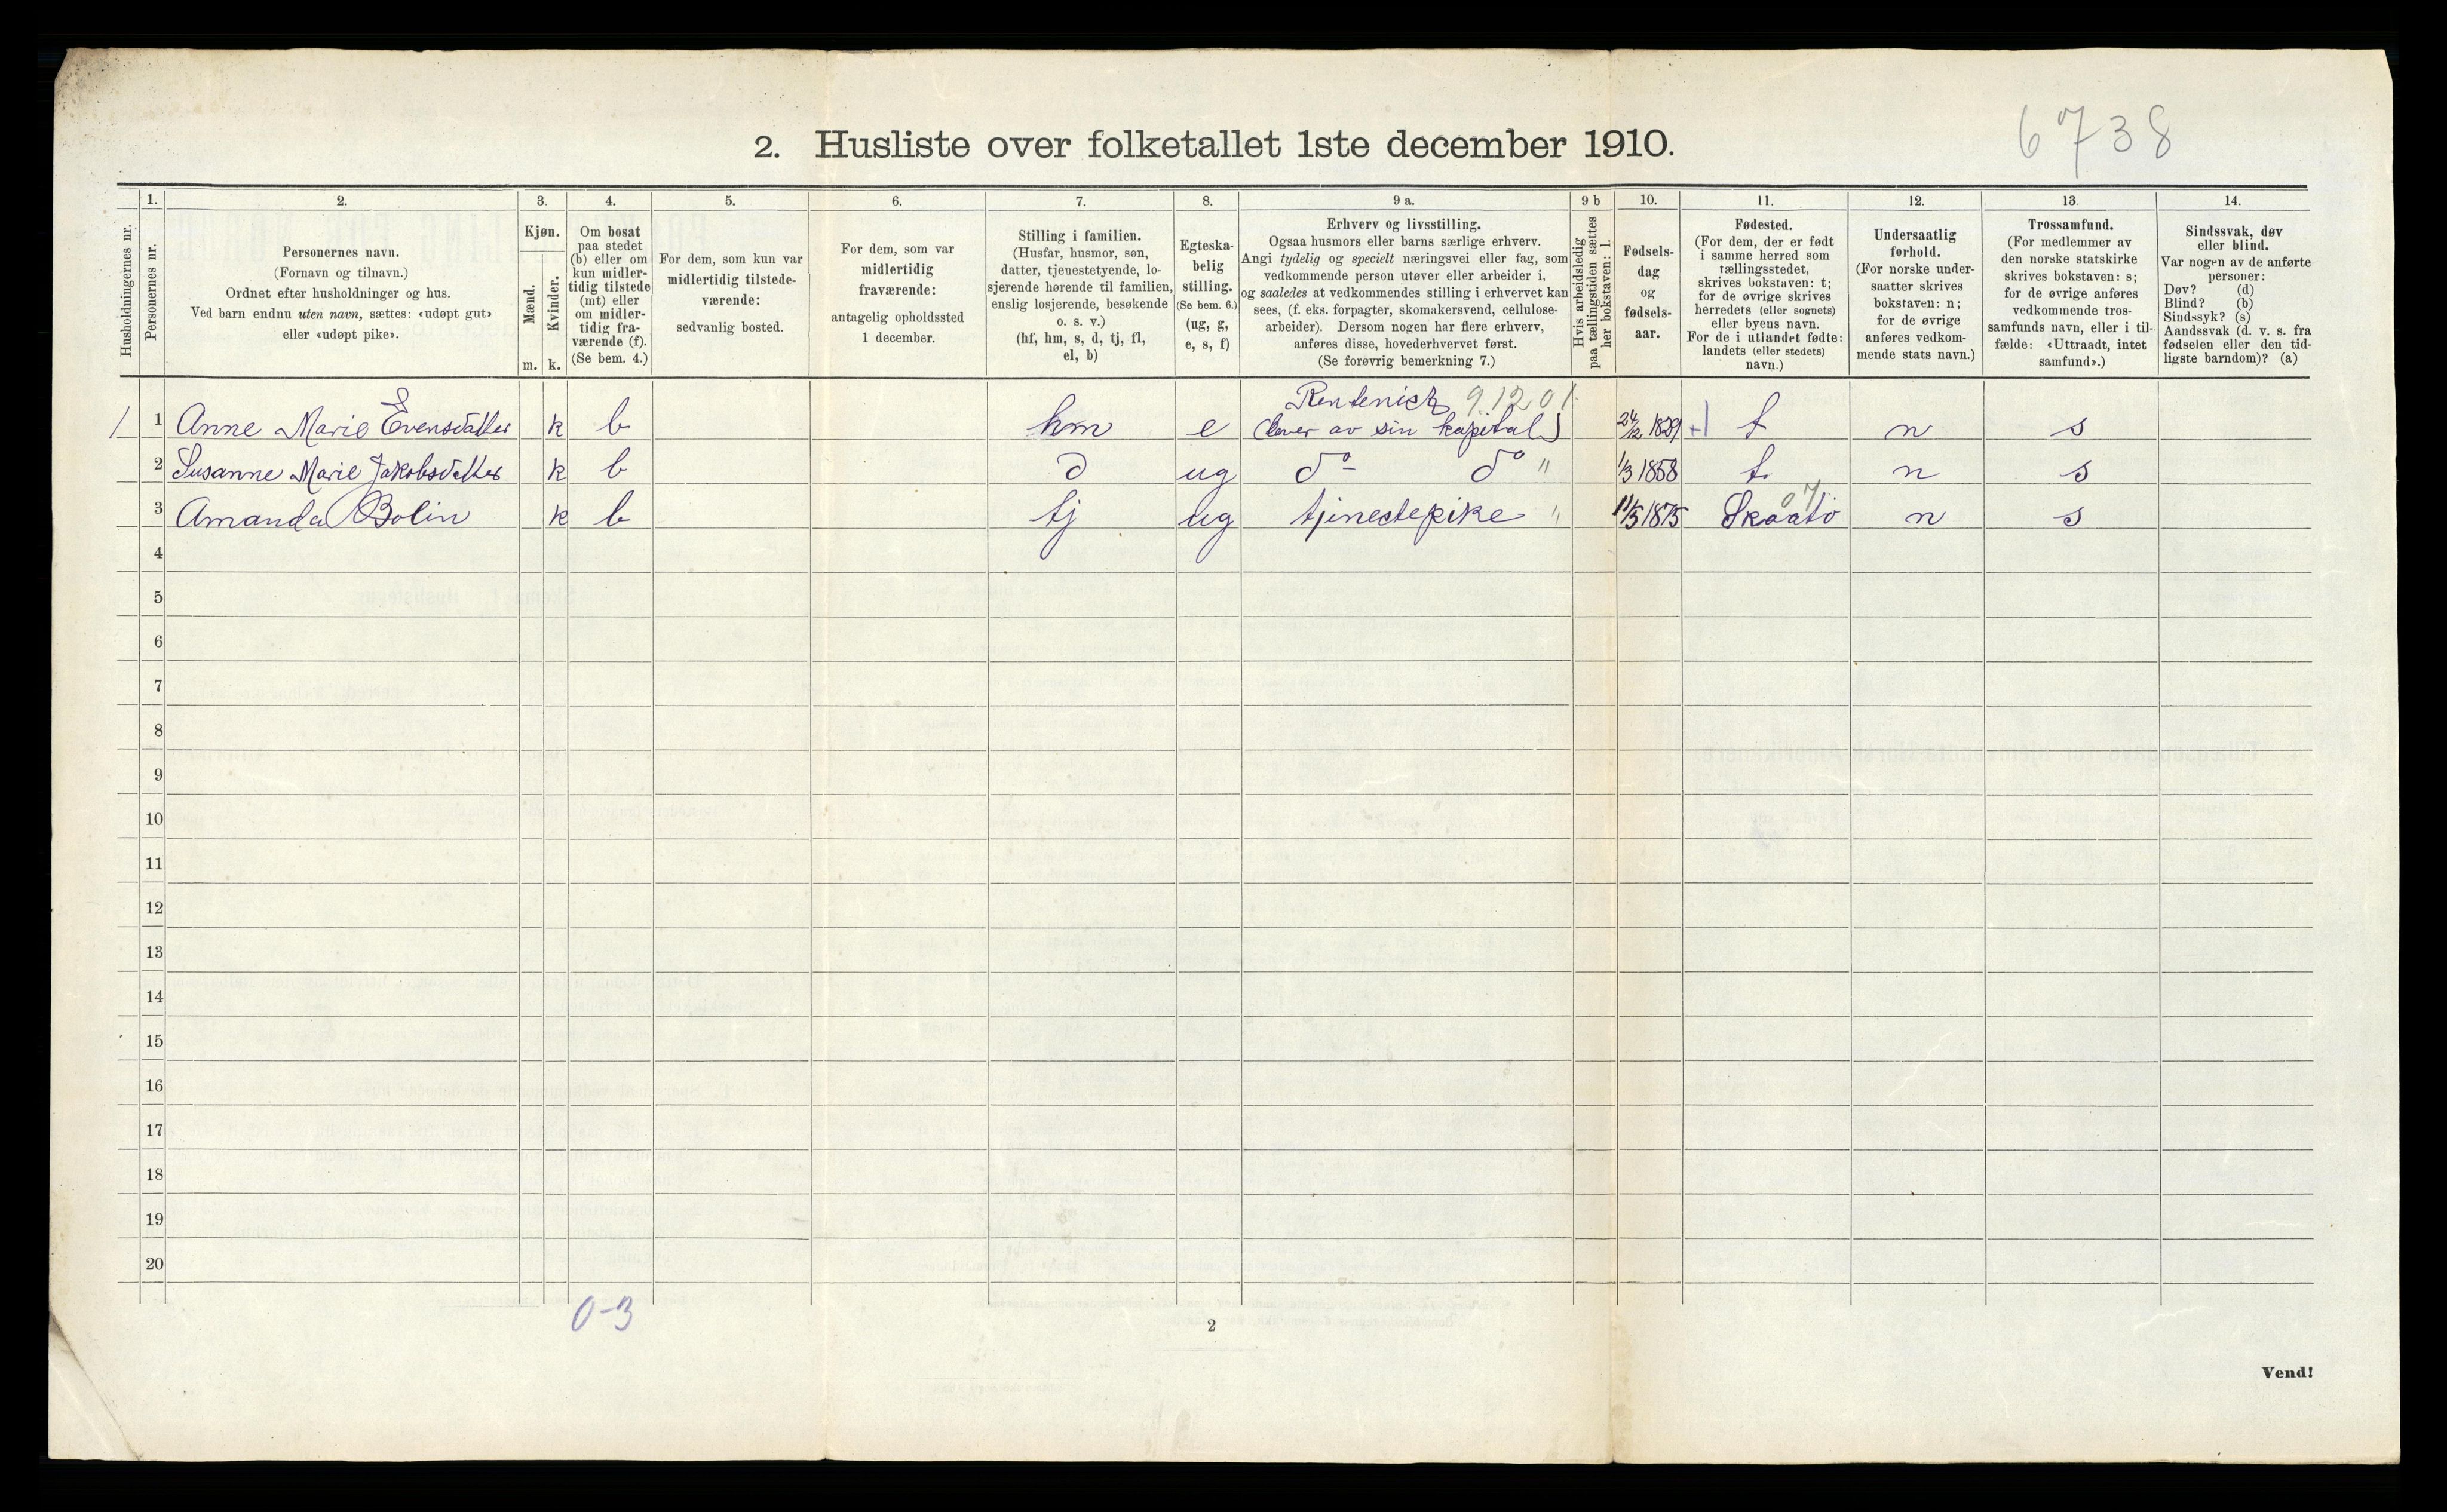 6738
2. Husliste over folketallet 1ste december 1910.
Husholdningernes nr.
1.
Personernes nr.
2.
Personernes navn.
(Fornavn og tilnavn.)
Ordnet efter husholdninger og hus.
Ved barn endnu uten navn, sættes: «udøpt gut»
eller «udøpt pike».
3.
Kjøn.
Mænd.
m.
Kvinder.
k.
4.
Om bosat
paa stedet
(b) eller om
kun midler-
tidig tilstede
(mt) eller
om midler-
tidig fra-
værende (f).
(Se bem. 4.)
5.
For dem, som kun var
midlertidig tilstede-
værende:
sedvanlig bosted.
6.
For dem, som var
midlertidig
fraværende:
antagelig opholdssted
1 december.
7.
Stilling i familien.
(Husfar, husmor, søn,
datter, tjenestetyende, lo-
sjerende hørende til familien,
enslig losjerende, besøkende
o. s. v.)
(hf, hm, s, d, tj, fl,
el, b)
8.
Egteska-
belig
stilling.
(Se bem. 6.)
(ug, g,
e, s, f)
9 a.
Erhverv og livsstilling.
Ogsaa husmors eller barns særlige erhverv.
Angi tydelig og specielt næringsvei eller fag, som
vedkommende person utøver eller arbeider i,
og saaledes at vedkommendes stilling i erhvervet kan
sees, (f. eks. forpagter, skomakersvend, cellulose-
arbeider). Dersom nogen har flere erhverv,
anføres disse, hovederhvervet først.
(Se forøvrig bemerkning 7.)
9 b
Hvis arbeidsledig
paa tællingstiden sættes
her bokstaven: l.
10.
Fødsels-
dag
og
fødsels-
aar.
11.
Fødested.
(For dem, der er født
i samme herred som
tællingsstedet,
skrives bokstaven: t;
for de øvrige skrives
herredets (eller sognets)
eller byens navn.
For de i utlandet fødte:
landets (eller stedets)
navn.)
12.
Undersaatlig
forhold.
(For norske under-
saatter skrives
bokstaven: n;
for de øvrige
anføres vedkom-
mende stats navn.)
13.
Trossamfund.
(For medlemmer av
den norske statskirke
skrives bokstaven: s;
for de øvrige anføres
vedkommende tros-
samfunds navn, eller i til-
fælde: «Uttraadt, intet
samfund».)
14.
Sindssvak, døv
eller blind.
Var nogen av de anførte
personer:
Døv? (d)
Blind? (b)
Sindssyk? (s)
Aandssvak (d. v. s. fra
fødselen eller den tid-
ligste barndom)? (a)
Rentenist 91201
1 1 Anne Marie Evensdatter k b hm e (lever av sin kapital) 24/12 1829 t n s
2 Susanne Marie Jakobsdatter k b d ug do do " 1/3 1858 t n s
07
3 Amanda Bolin k b tj ug tjenestepike " 11/5 1875 Skaatø n s
4
5
6
7
8
9
10
11
12
13
14
15
16
17
18
19
20
0-3
2
Vend!